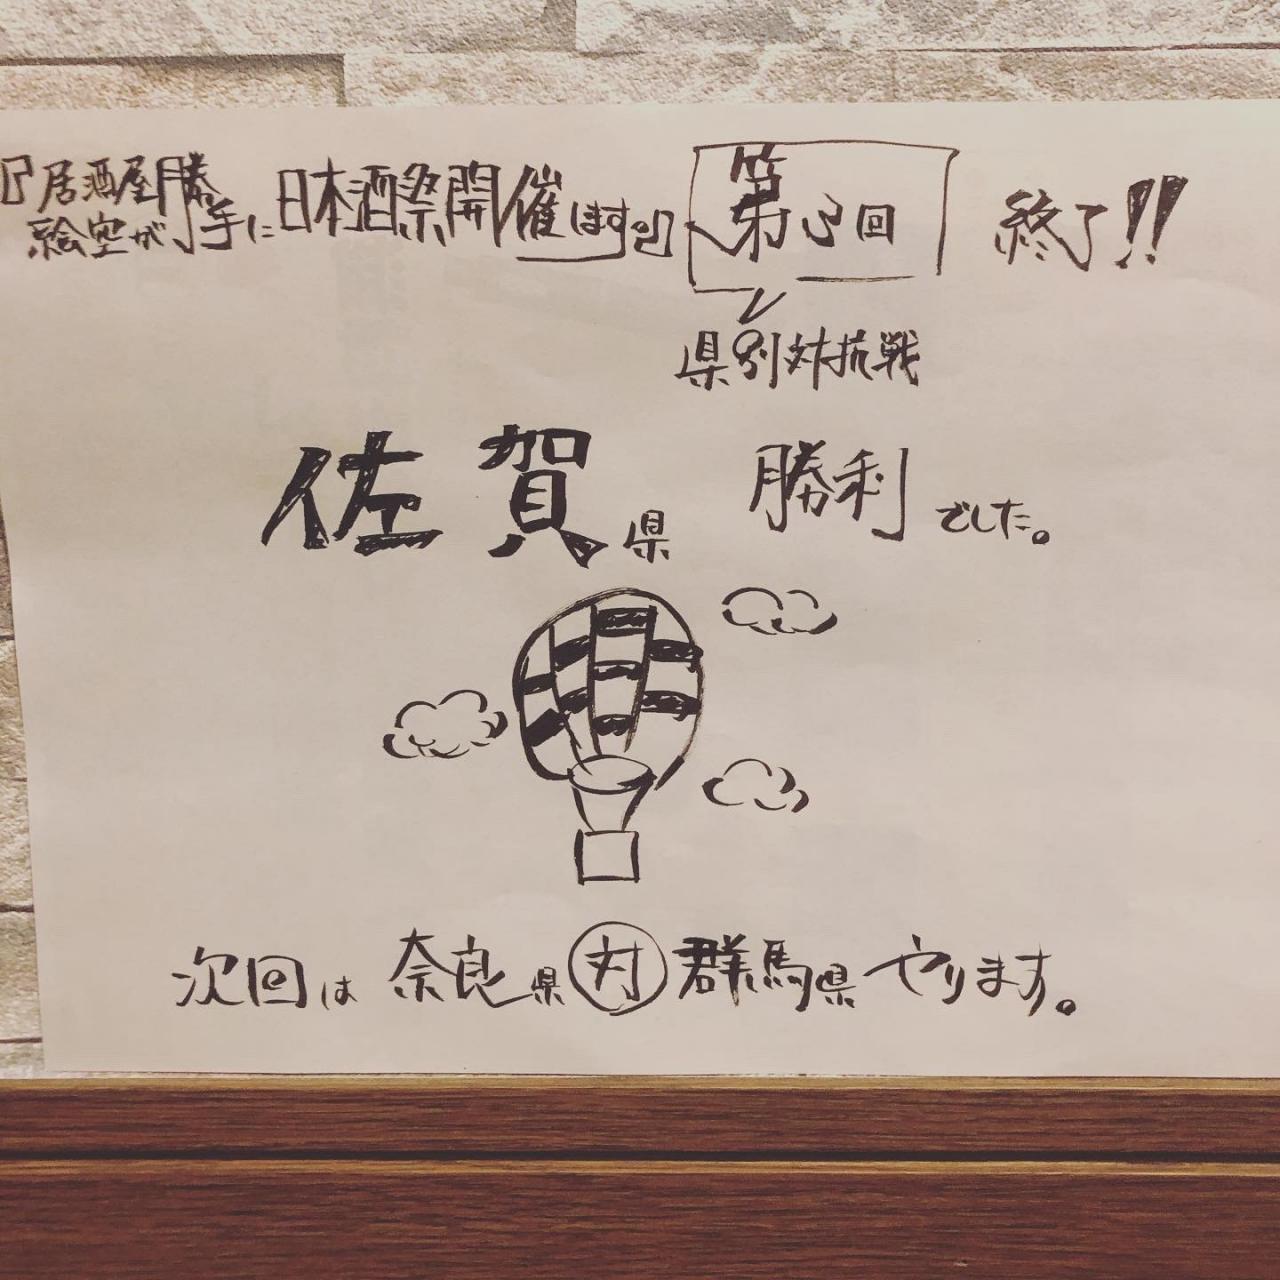 『居酒屋絵空が勝手に日本酒祭開催します。』第3回 終了!!
県別対抗戦
佐賀県 勝利でした。
次回は 奈良県 対 群馬県 やります。